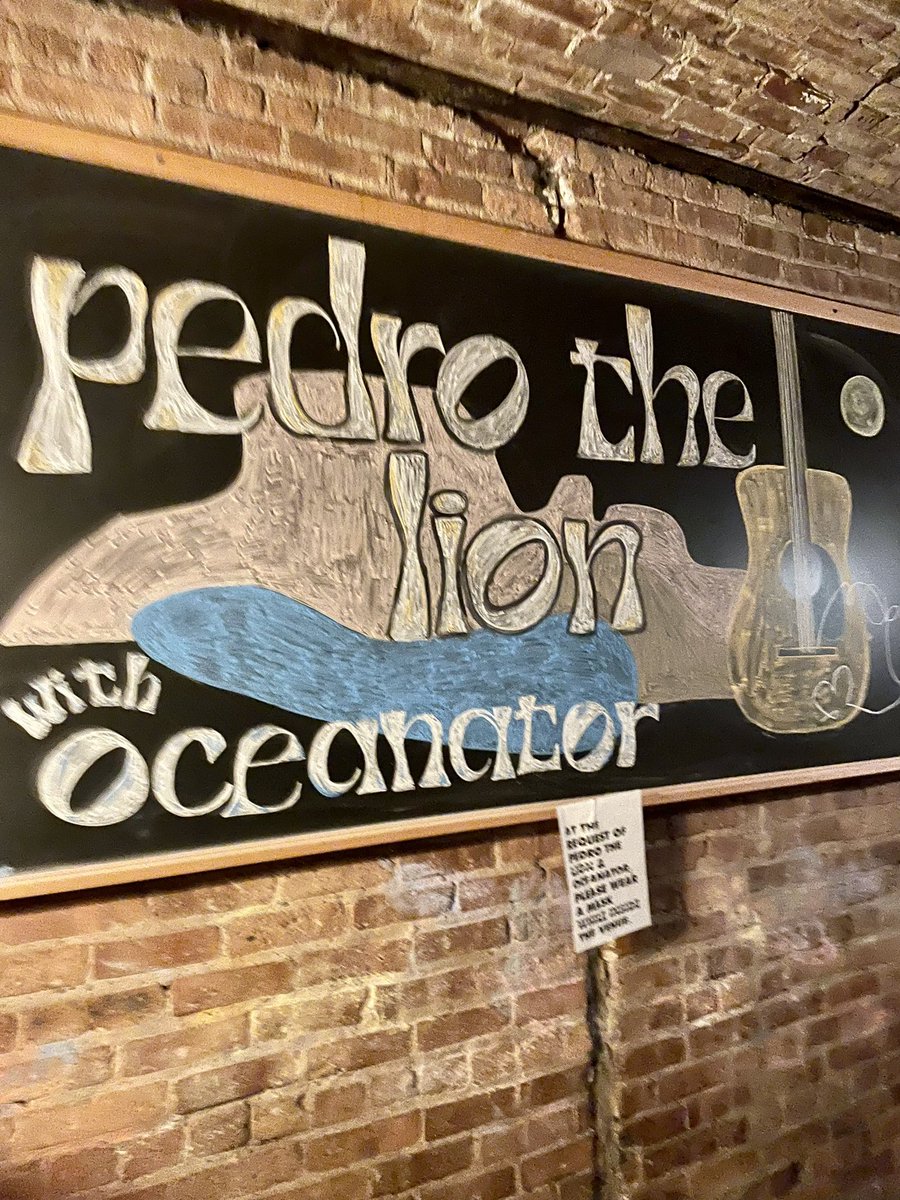 pedro the
lion
with
oceanator
AT THE
REQUEST OF
PEDRO THE
LION &
OCEANATOR,
PLEASE WEAR
A MASK
WHILE INSIDE
THE VENUE.